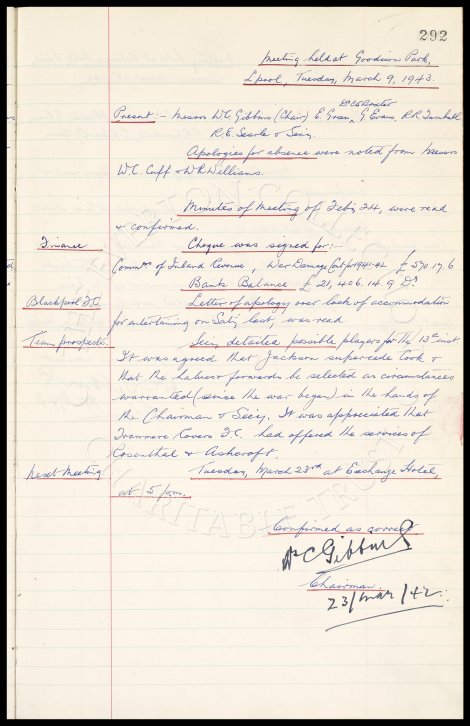 292
Meeting held at Goodison Park,
Lpool, Tuesday, March 9, 1943.
Present:- Messrs W.C. Gibbins (Chair) E. Green, Dr C.S. Baxter G. Evans, R.R. Turnbull
R.E. Searle & Secy.
Apologies for absence were noted from Messrs
W.C. Cuff & W.R. Williams.
Minutes of Meeting of Feby 24, were read
& confirmed.
Finance
Cheque was signed for:
Commrs of Inland Revenue, War Damage Cont for 1941-42 £ 570.17.6
Bank Balance £ 21,406.14.9 Dr
Blackpool F.C.
Letter of apology over lack of accommodation
for entertaining on Saty last, was read.
Team prospects.
Secy detailed possible players for the 13th inst.
It was agreed that Jackson supercede Cook &
that the halves & forwards be selected as circumstances
warranted (since the war began) in the hands of
the Chairman & Secy. It was appreciated that
Tranmere Rovers F.C. had offered the services of
Rosenthal & Ashcroft.
Next Meeting
Tuesday, March 23rd at Exchange Hotel,
at 5 p.m.
Confirmed as correct
W C Gibbins
Chairman.
23/Mar/42.
EVERTON COLLECTION
CHARITABLE TRUST